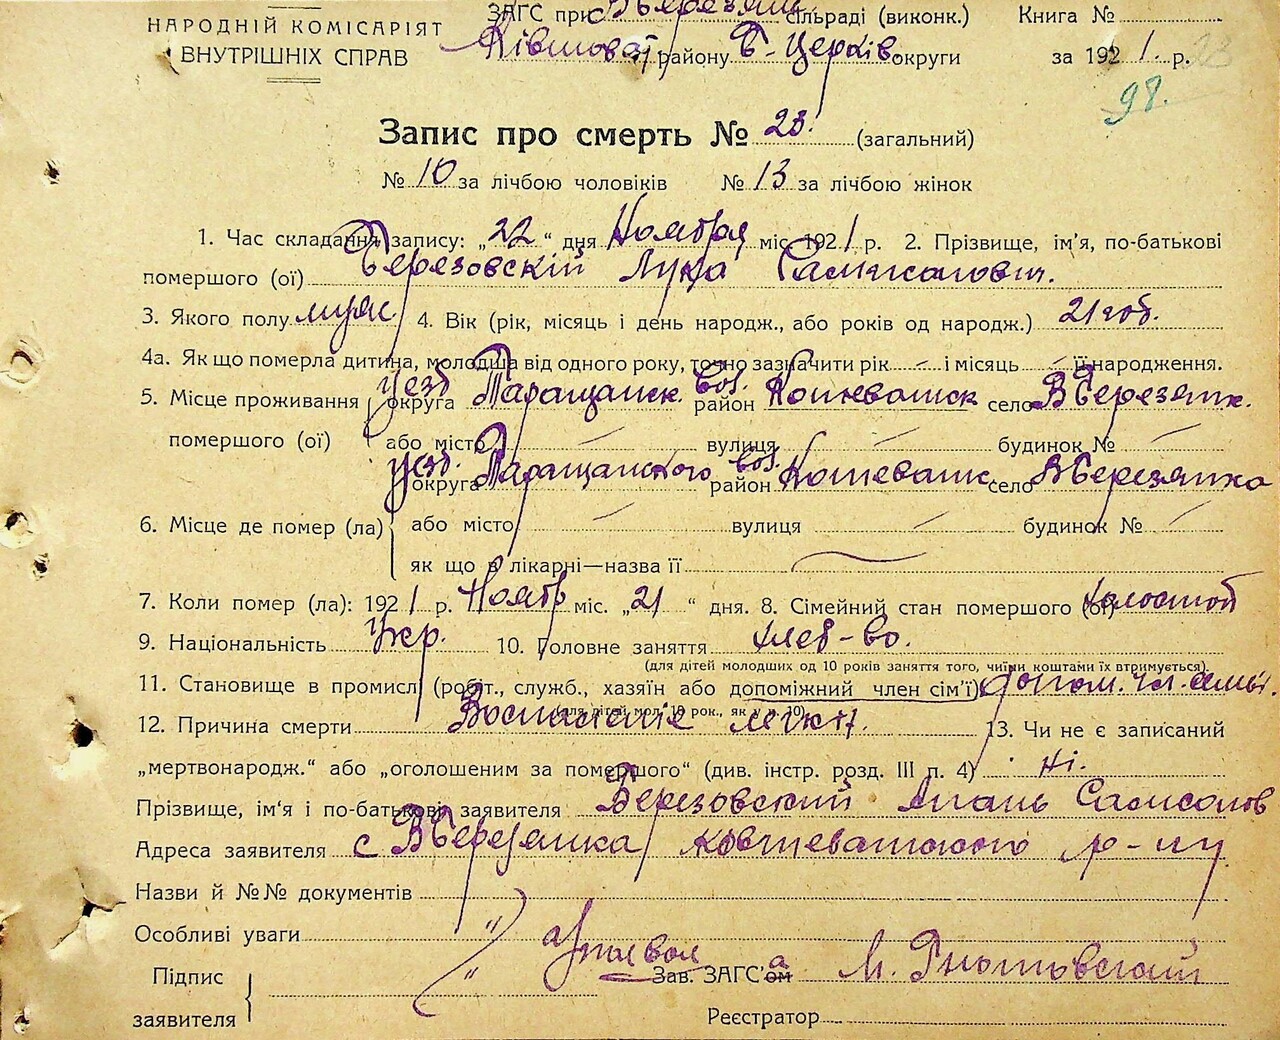 НАРОДНІЙ КОМІСАРІЯТ
ВНУТРІШНІХ СПРАВ
ЗАГС при сільраді (виконк.) Книга №
району Б-Церків. округи за 1921. р.
98.
Запис про смерть № 23. (загальний)
№ 10 за лічбою чоловіків № 13 за лічбою жінок
1. Час складання запису: „22“ дня Ноября міс. 1921 р. 2. Прізвище, ім'я, по-батькові
помершого (ої) Березовскій Лука Самсонович.
3. Якого полу муж. 4. Вік (рік, місяць і день народж., або років од народж.) 21 год.
4а. Як що померла дитина, молодша від одного року, точно зазначити рік — і місяць — її народження.
5. Місце проживання округа уезд Таращанск район вол. село В Березянк.
помершого (ої) або місто — вулиця — будинок № —
округа уезд. Таращанского район вол. село В Березянка
6. Місце де помер (ла) або місто — вулиця — будинок № —
як що в лікарні—назва її
7. Коли помер (ла): 1921 р. Ноябр міс. „21“ дня. 8. Сімейний стан помершого (ої) холостой
9. Національність Укр. 10. Головне заняття хлеб-во.
(для дітей молодших од 10 років заняття того, чиїми коштами їх втримується).
11. Становище в промислі (робіт., служб., хазяїн або допоміжний член сім'ї) допом. чл. семьи.
(для дітей мол. 10 рок., як у п. 10)
12. Причина смерти Воспаление легких. 13. Чи не є записаний
„мертвонародж.“ або „оголошеним за помершого“ (див. інстр. розд. III п. 4) ні.
Прізвище, ім'я і по-батькові заявителя Березовский Самсонов
Адреса заявителя с В Березянка р-ну
Назви й №№ документів
Особливі уваги
Підпис
заявителя
Зав. ЗАГС'ом а
Реєстратор